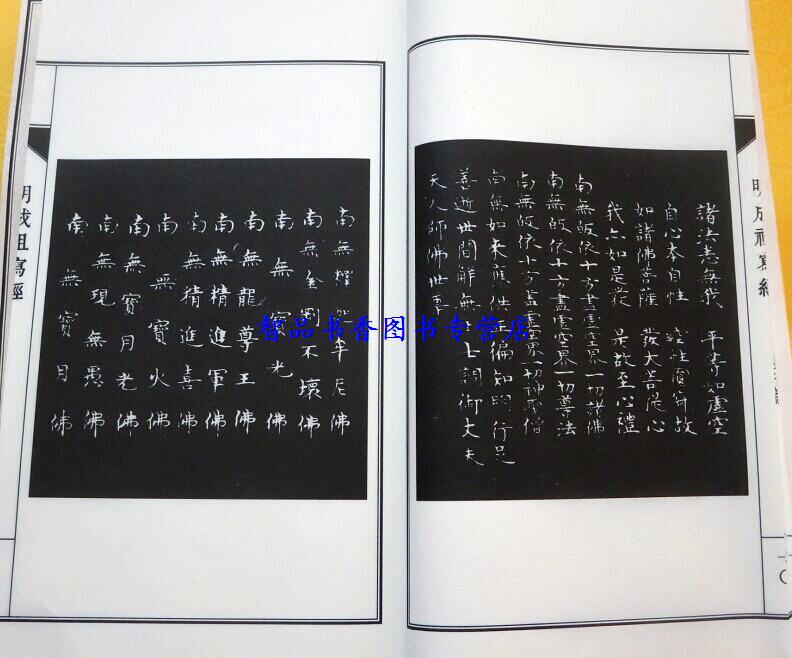 明成祖寫經
諸法悉無我 平等如虛空
自心本自性 性實寂故
如諸佛菩薩 發大菩提心
我亦如是發 是故至心禮
南無皈依十方盡虛空界一切諸佛
南無皈依十方盡虛空界一切尊法
南無皈依十方盡虛空界一切神聖僧
南無如來應供正徧知明行足
善逝世間解無上士調御丈夫
天人師佛世尊
智品书香图书专营店
南無釋迦牟尼佛
南無金剛不壞佛
南無寶光佛
南無龍尊王佛
南無精進軍佛
南無精進喜佛
南無寶火佛
南無寶月光佛
南無現無愚佛
南無寶月佛
明成祖寫經